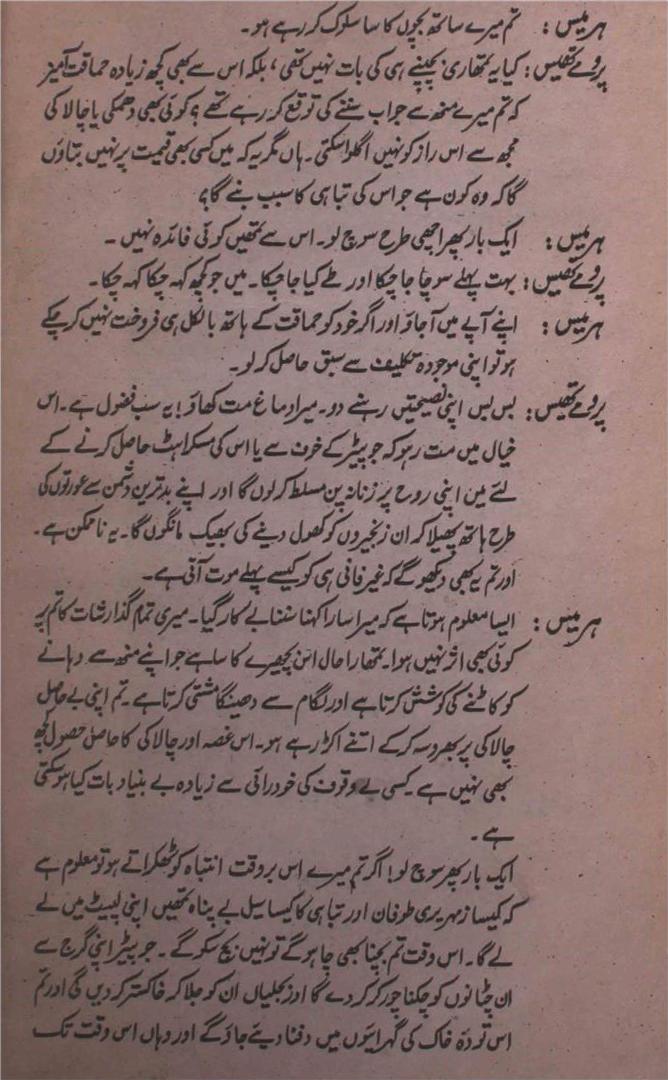 ہرمیس : تم میرے ساتھ بچوں کا سا سلوک کر رہے ہو۔
پرومےتھیس : کیا یہ تمھاری بچپنے ہی کی بات نہیں تھی، بلکہ اس سے بھی کچھ زیادہ حماقت آمیز
کہ تم میرے منھ سے جواب سننے کی توقع کر رہے تھے؟ کوئی بھی دھمکی یا چالاکی
مجھ سے اس راز کو نہیں اگلوا سکتی۔ ہاں مگر یہ کہ میں کسی بھی قیمت پر نہیں بتاؤں
گا کہ وہ کون ہے جو اس کی تباہی کا سبب بنے گا؟
ہرمیس : ایک بار پھر اچھی طرح سوچ لو۔ اس سے تمھیں کوئی فائدہ نہیں۔
پرومےتھیس : بہت پہلے سوچا جا چکا اور طے کیا جا چکا۔ میں جو کچھ کہہ چکا کہہ چکا۔
ہرمیس : اپنے آپے میں آجاؤ اور اگر خود کو حماقت کے ہاتھ بالکل ہی فروخت نہیں کر چکے
ہو تو اپنی موجودہ تکلیف سے سبق حاصل کر لو۔
پرومےتھیس : بس بس اپنی نصیحتیں رہنے دو۔ میرا دماغ مت کھاؤ! یہ سب فضول ہے۔ اس
خیال میں مت رہو کہ جوپیٹر کے خوف سے یا اس کی مسکراہٹ حاصل کرنے کے
لئے میں اپنی روح پر زنانہ پن مسلط کر لوں گا اور اپنے بدترین دشمن سے عورتوں کی
طرح ہاتھ پھیلا کر ان زنجیروں کو کھول دینے کی بھیک مانگوں گا۔ یہ ناممکن ہے۔
اور تم یہ بھی دیکھو گے کہ غیر فانی ہی کو کیسے پہلے موت آتی ہے۔
ہرمیس : ایسا معلوم ہوتا ہے کہ میرا سارا کہنا سننا بے کار گیا۔ میری تمام گذارشات کا تم پر
کوئی بھی اثر نہیں ہوا۔ تمھارا حال اس بچھیرے کا سا ہے جو اپنے منھ سے دہانے
کو کاٹنے کی کوشش کرتا ہے اور لگام سے دھینگا مشتی کرتا ہے۔ تم اپنی بے حاصل
چالاکی پر بھروسہ کر کے اتنے اکڑ رہے ہو۔ اس غصہ اور چالاکی کا حاصل حصول کچھ
بھی نہیں ہے۔ کسی بے وقوف کی خود رائی سے زیادہ بے بنیاد بات کیا ہو سکتی
ہے۔
ایک بار پھر سوچ لو! اگر تم میرے اس بروقت انتباہ کو ٹھکراتے ہو تو معلوم ہے
کہ کیسا زمہریری طوفان اور تباہی کا کیسا سیل بے پناہ تمھیں اپنی لپیٹ میں لے
لے گا۔ اس وقت تم بچنا بھی چاہو گے تو نہیں بچ سکو گے۔ جوپیٹر اپنی گرج سے
ان چٹانوں کو چکنا چور کر کر دے گا اور بجلیاں ان کو جلا کر خاکستر کر دیں گی اور تم
اس تودۂ خاک کی گہرائیوں میں دفنا دیئے جاؤ گے اور وہاں اس وقت تک